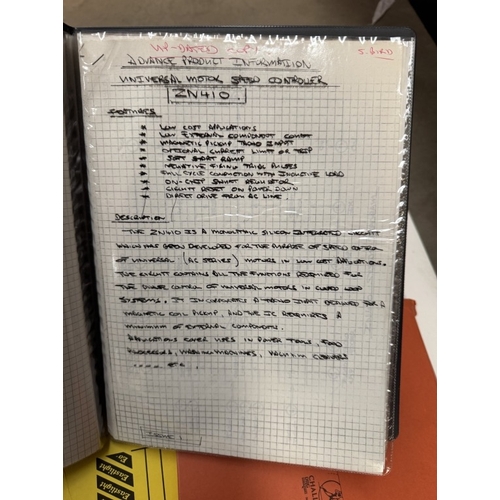 UP-DATED COPY
S. BIRD
ADVANCE PRODUCT INFORMATION
UNIVERSAL MOTOR SPEED CONTROLLER
ZN410.
FEATURES
* LOW COST APPLICATIONS
* LOW EXTERNAL COMPONENT COUNT
* MAGNETIC PICKUP TACHO INPUT
* OPTIONAL CURRENT LIMIT OR TRIP
* SOFT START RAMP
* NEGATIVE FIRING TRIAC PULSES
* FULL CYCLE CONDUCTION WITH INDUCTIVE LOAD
* ON-CHIP SHUNT REGULATOR
* CIRCUIT RESET ON POWER DOWN
* DIRECT DRIVE FROM AC LINE.
DESCRIPTION
THE ZN410 IS A MONOLITHIC SILICON INTEGRATED CIRCUIT
WHICH HAS BEEN DEVELOPED FOR THE PURPOSE OF SPEED CONTROL
OF UNIVERSAL (AC SERIES) MOTORS IN LOW COST APPLICATIONS.
THE CIRCUIT CONTAINS ALL THE FUNCTIONS REQUIRED FOR
THE CONTROL OF UNIVERSAL MOTORS IN CLOSED LOOP
SYSTEMS. IT INCORPORATES A TACHO INPUT DESIGNED FOR A
MAGNETIC COIL PICKUP, AND THE IC REQUIRES A
MINIMUM OF EXTERNAL COMPONENTS.
APPLICATIONS COVER USES IN POWER TOOLS, FOOD
PROCESSORS, WASHING MACHINES, VACUUM CLEANERS
..... ETC.
ISSUE 1
Eastlight
Eastlight
Eastlight
CHALL